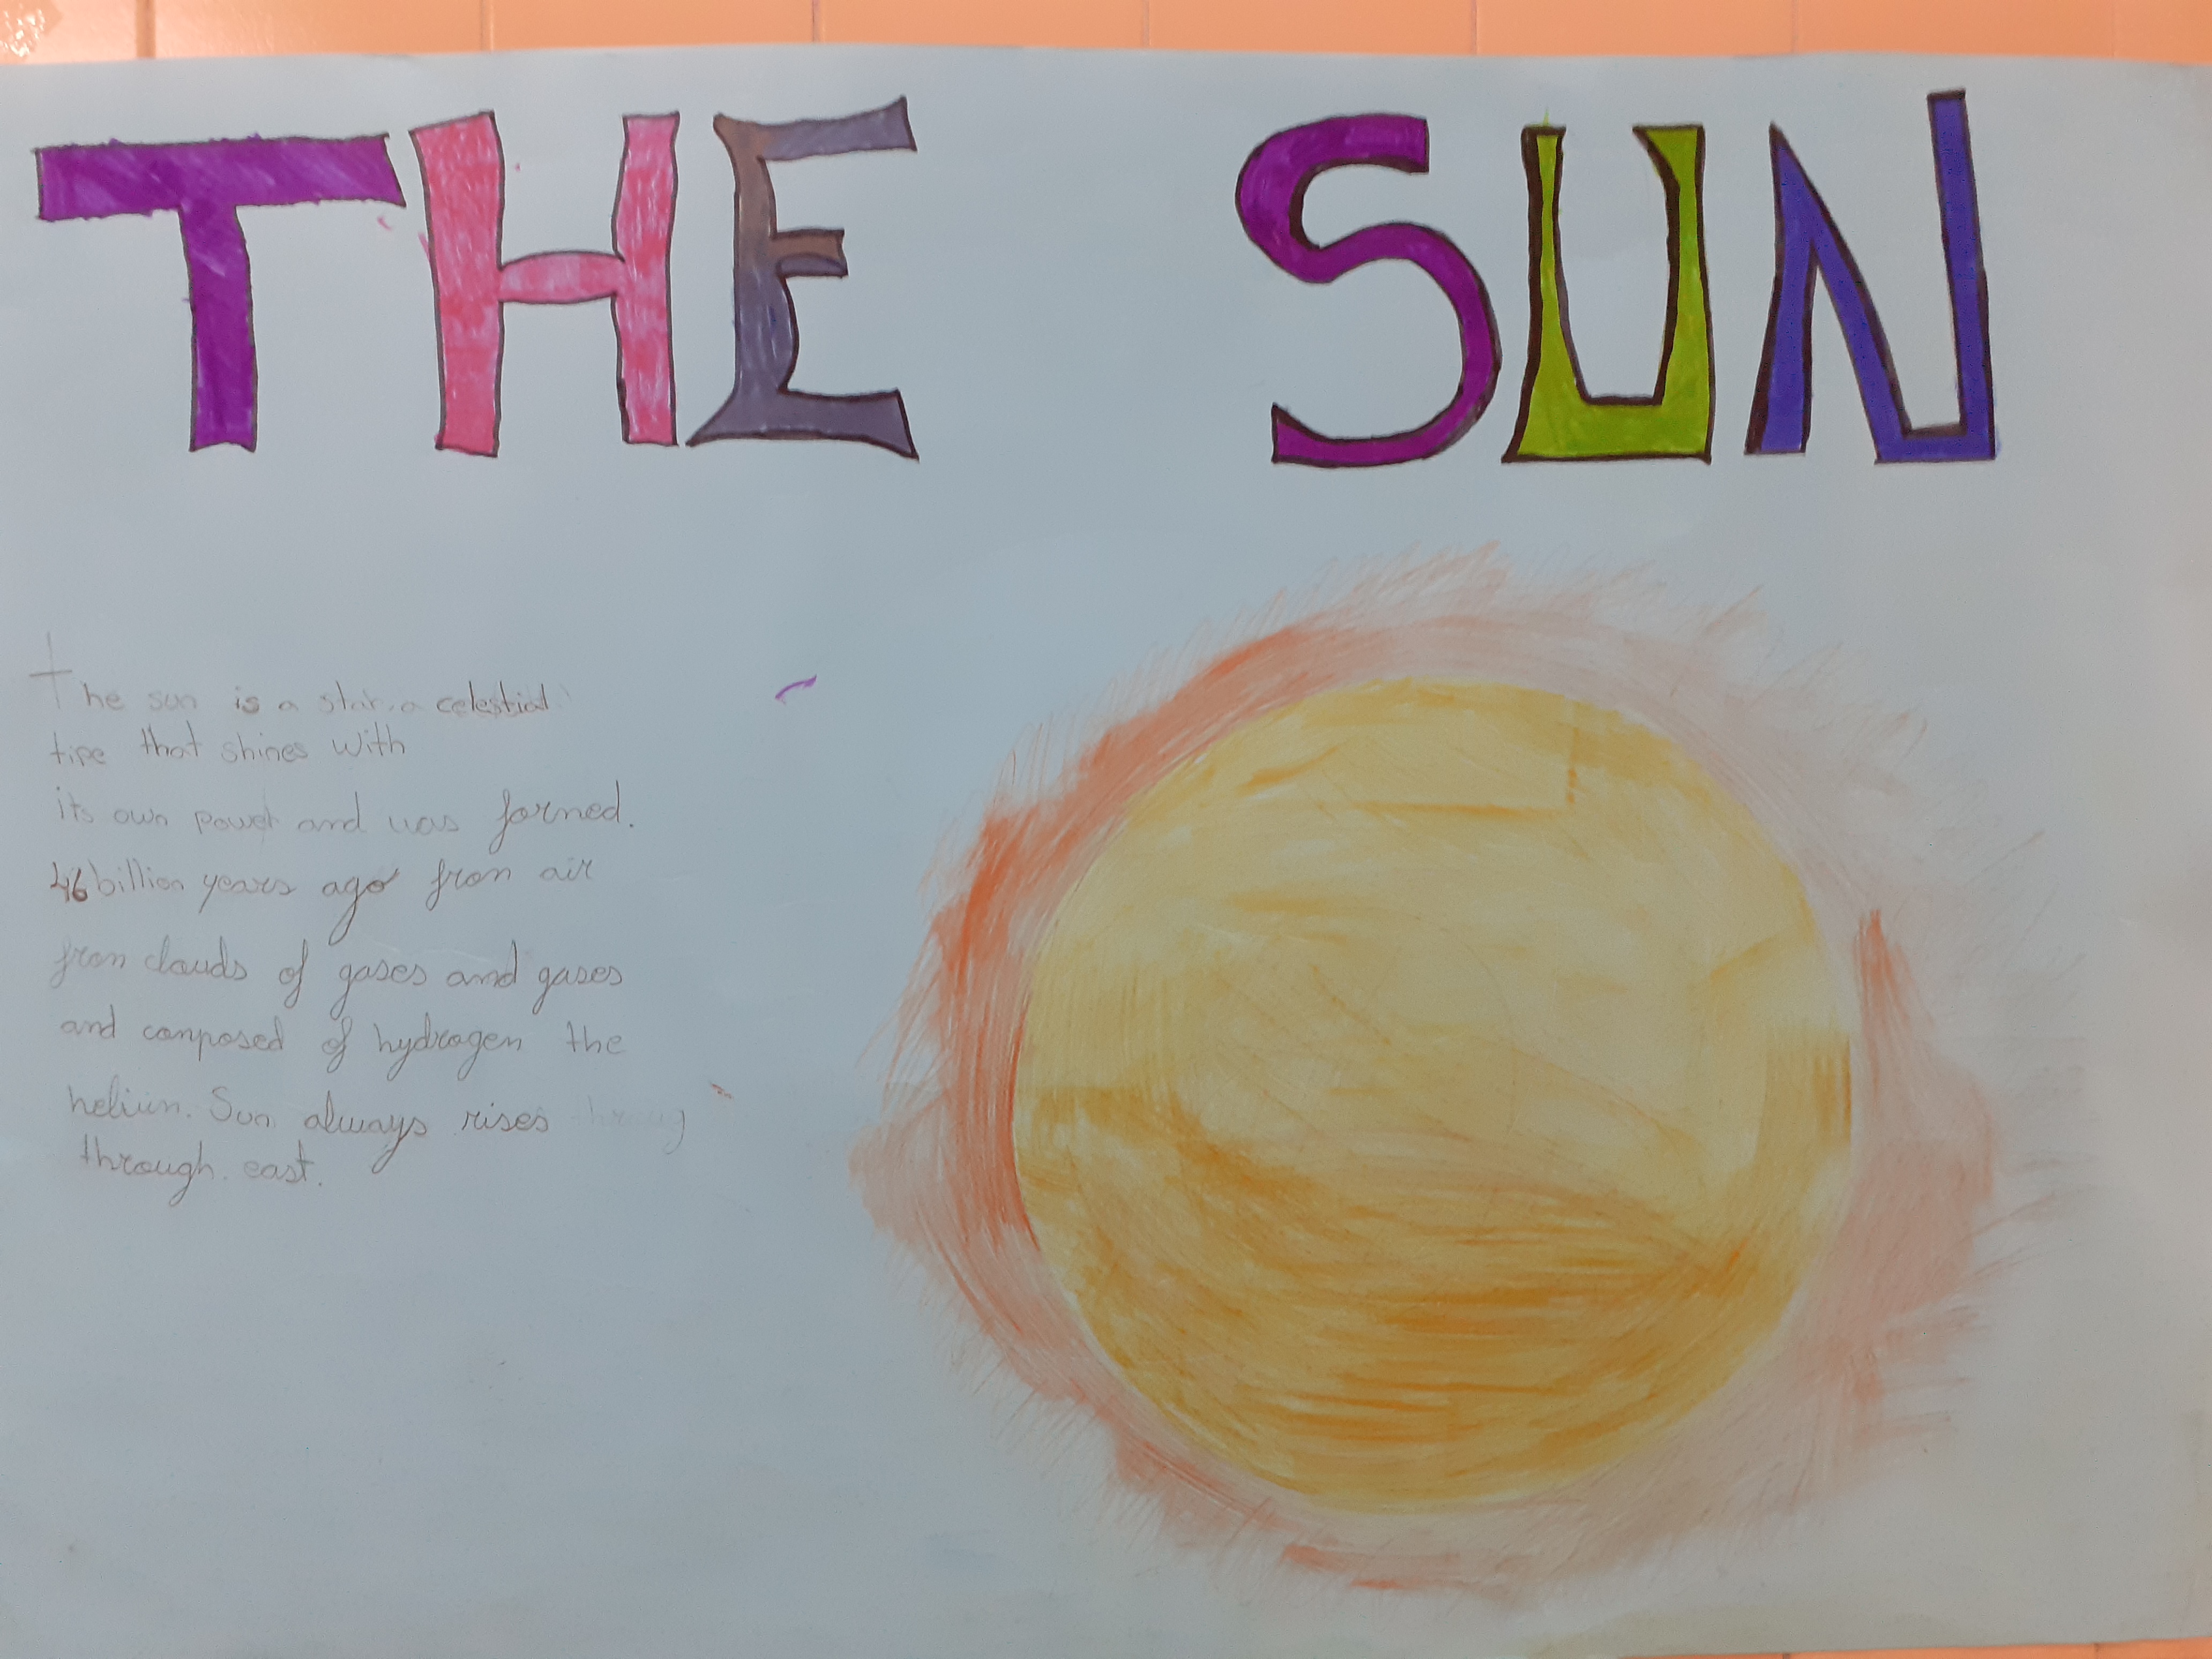 THE SUN
The sun is a star. a celestial
tipe that shines with
its own power and was formed.
46 billion years ago from air
from clouds of gases and gases
and composed of hydrogen the
helium. Sun always rises
through. east.